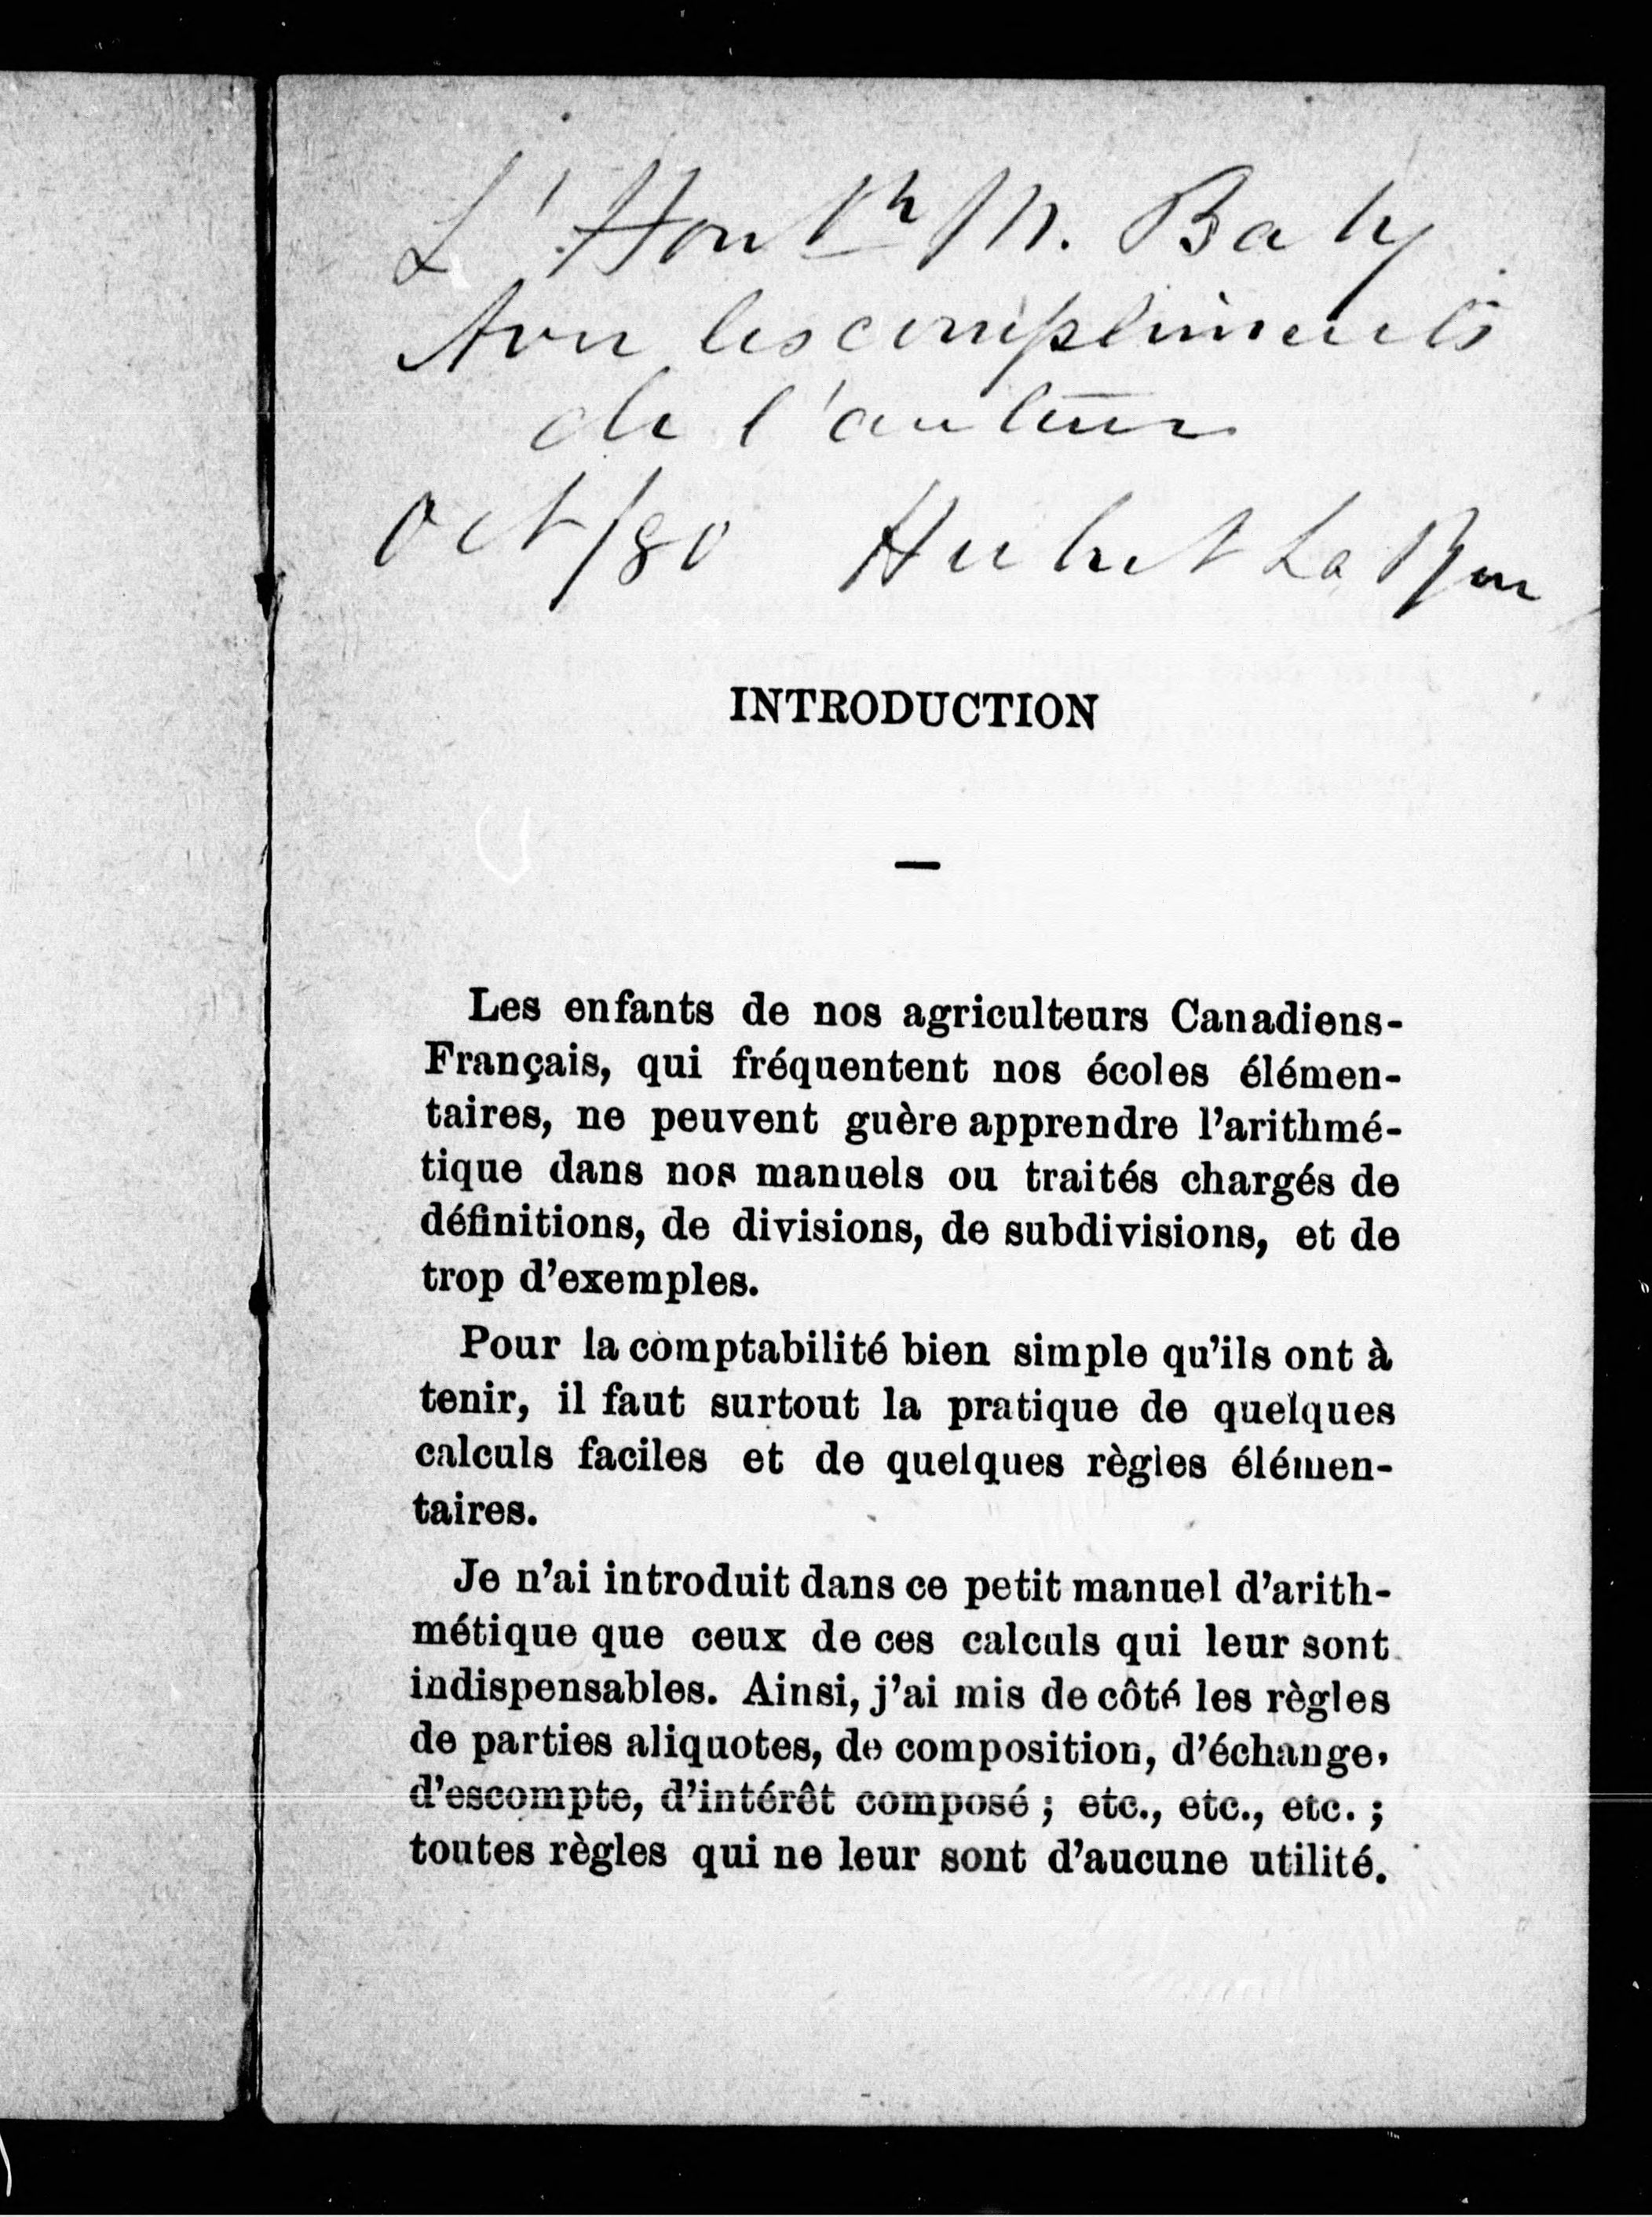 L'Hon M. Baby
Avec les compliments
de l'auteur
Oct/80 Hubert La Rue
INTRODUCTION
Les enfants de nos agriculteurs Canadiens-
Français, qui fréquentent nos écoles élémen-
taires, ne peuvent guère apprendre l'arithmé-
tique dans nos manuels ou traités chargés de
définitions, de divisions, de subdivisions, et de
trop d'exemples.
Pour la comptabilité bien simple qu'ils ont à
tenir, il faut surtout la pratique de quelques
calculs faciles et de quelques règles élémen-
taires.
Je n'ai introduit dans ce petit manuel d'arith-
métique que ceux de ces calculs qui leur sont
indispensables. Ainsi, j'ai mis de côté les règles
de parties aliquotes, de composition, d'échange,
d'escompte, d'intérêt composé ; etc., etc., etc. ;
toutes règles qui ne leur sont d'aucune utilité.